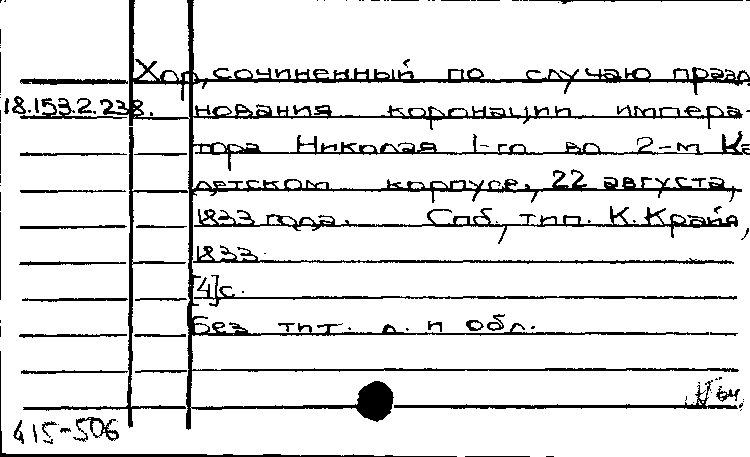 Хор, сочиненный по случаю празд
18.153.2.238. нования коронации импера-
тора Николая I-го во 2-м Ка
детском корпусе, 22 августа,
1833 года. Спб, тип. К. Крайя,
1833.
[4]с.
Без тит. л. и обл.
64
415-506